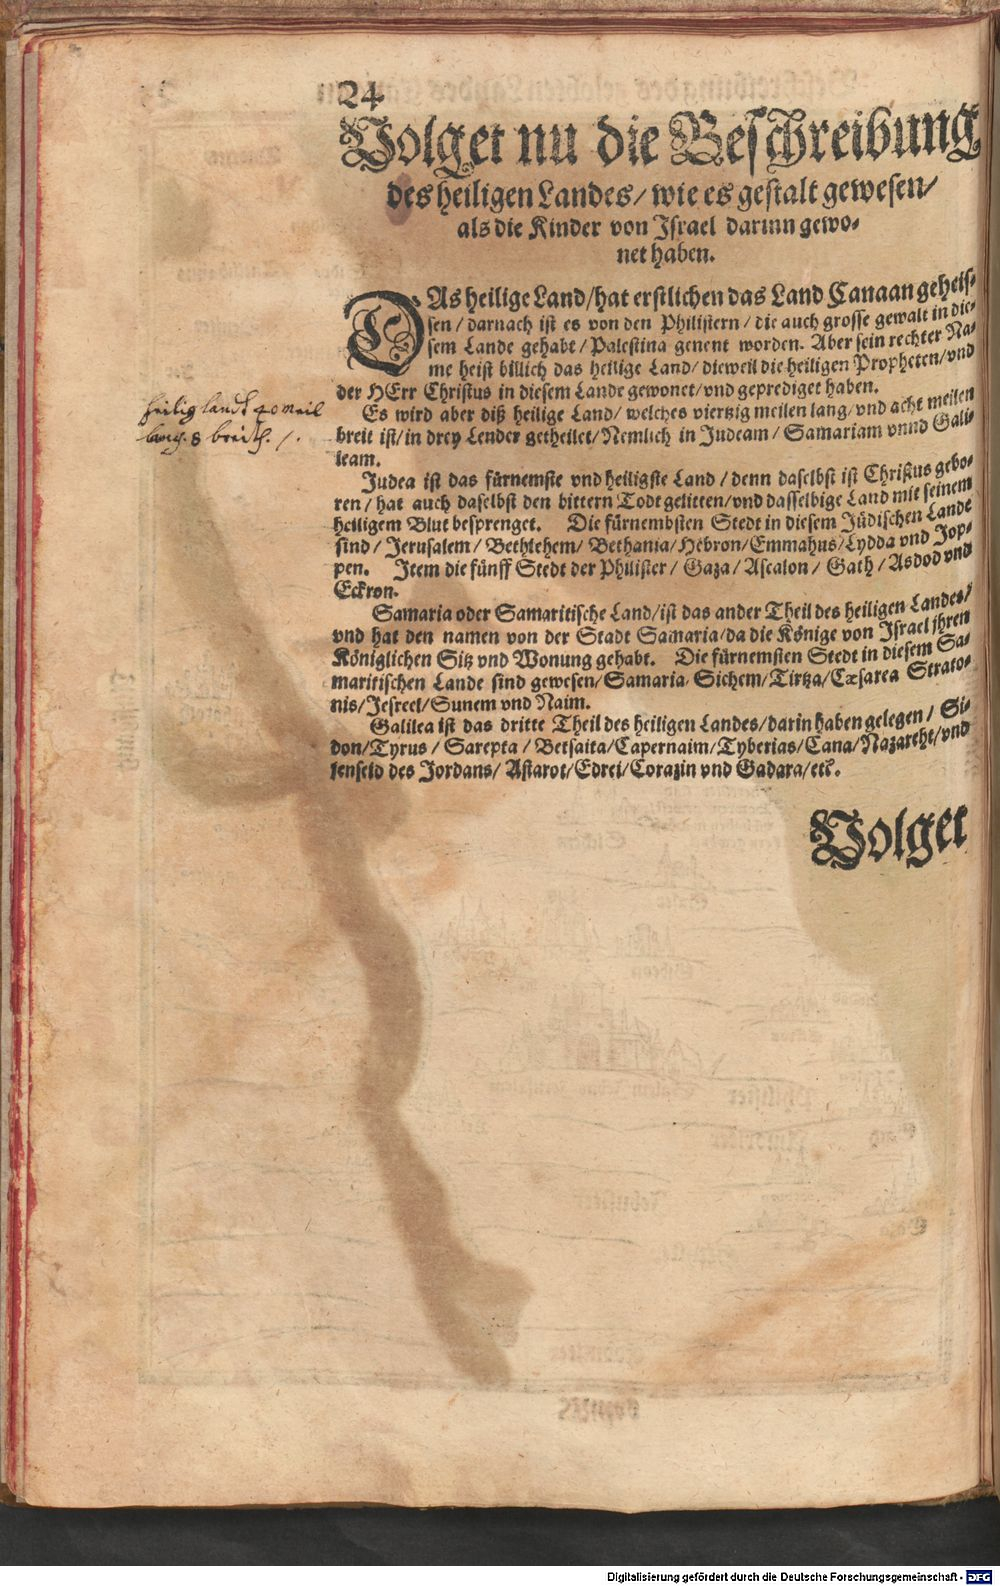 24
Volget nu die Beschreibung
des heiligen Landes/ wie es gestalt gewesen/
als die Kinder von Israel darinn gewo-
net haben.
DAs heilige Land/ hat erstlichen das Land Canaan geheis-
sen/ darnach ist es von den Philistern/ die auch grosse gewalt in die-
sem Lande gehabt/ Palestina genent worden. Aber sein rechter Na-
me heist billich das heilige Land/ dieweil die heiligen Propheten/ vnd
der HErr Christus in diesem Lande gewonet/ vnd geprediget haben.
heilig landt 40 meil
lang. 8 breidt.
Es wird aber diß heilige Land/ welches viertzig meilen lang/ vnd acht meilen
breit ist/ in drey Lender getheilet/ Nemlich in Judeam/ Samariam vnnd Gali-
leam.
Judea ist das fürnemste vnd heiligste Land/ denn daselbst ist Christus gebo-
ren/ hat auch daselbst den bittern Todt gelitten/ vnd dasselbige Land mit seinem
heiligem Blut besprenget. Die fürnembsten Stedt in diesem Jüdischen Lande
sind/ Jerusalem/ Bethlehem/ Bethania/ Hebron/ Emmahus/ Lydda vnd Jop-
pen. Item die fünff Stedt der Philister/ Gaza/ Ascalon/ Gath/ Asdod vnd
Eckron.
Samaria oder Samaritische Land/ ist das ander Theil des heiligen Landes/
vnd hat den namen von der Stadt Samaria/ da die Könige von Israel jhren
Königlichen Sitz vnd Wonung gehabt. Die fürnemsten Stedt in diesem Sa-
maritischen Lande sind gewesen/ Samaria/ Sichem/ Tirtza/ Cæsarea Strato-
nis/ Jesreel/ Sunem vnd Naim.
Galilea ist das dritte Theil des heiligen Landes/ darin haben gelegen/ Si-
don/ Tyrus/ Sarepta/ Betsaita/ Capernaim/ Tyberias/ Cana/ Nazareht/ vnd
jenseid des Jordans/ Astarot/ Edrei/ Corazin vnd Gadara/ etc.
Volget
Digitalisierung gefördert durch die Deutsche Forschungsgemeinschaft - DFG